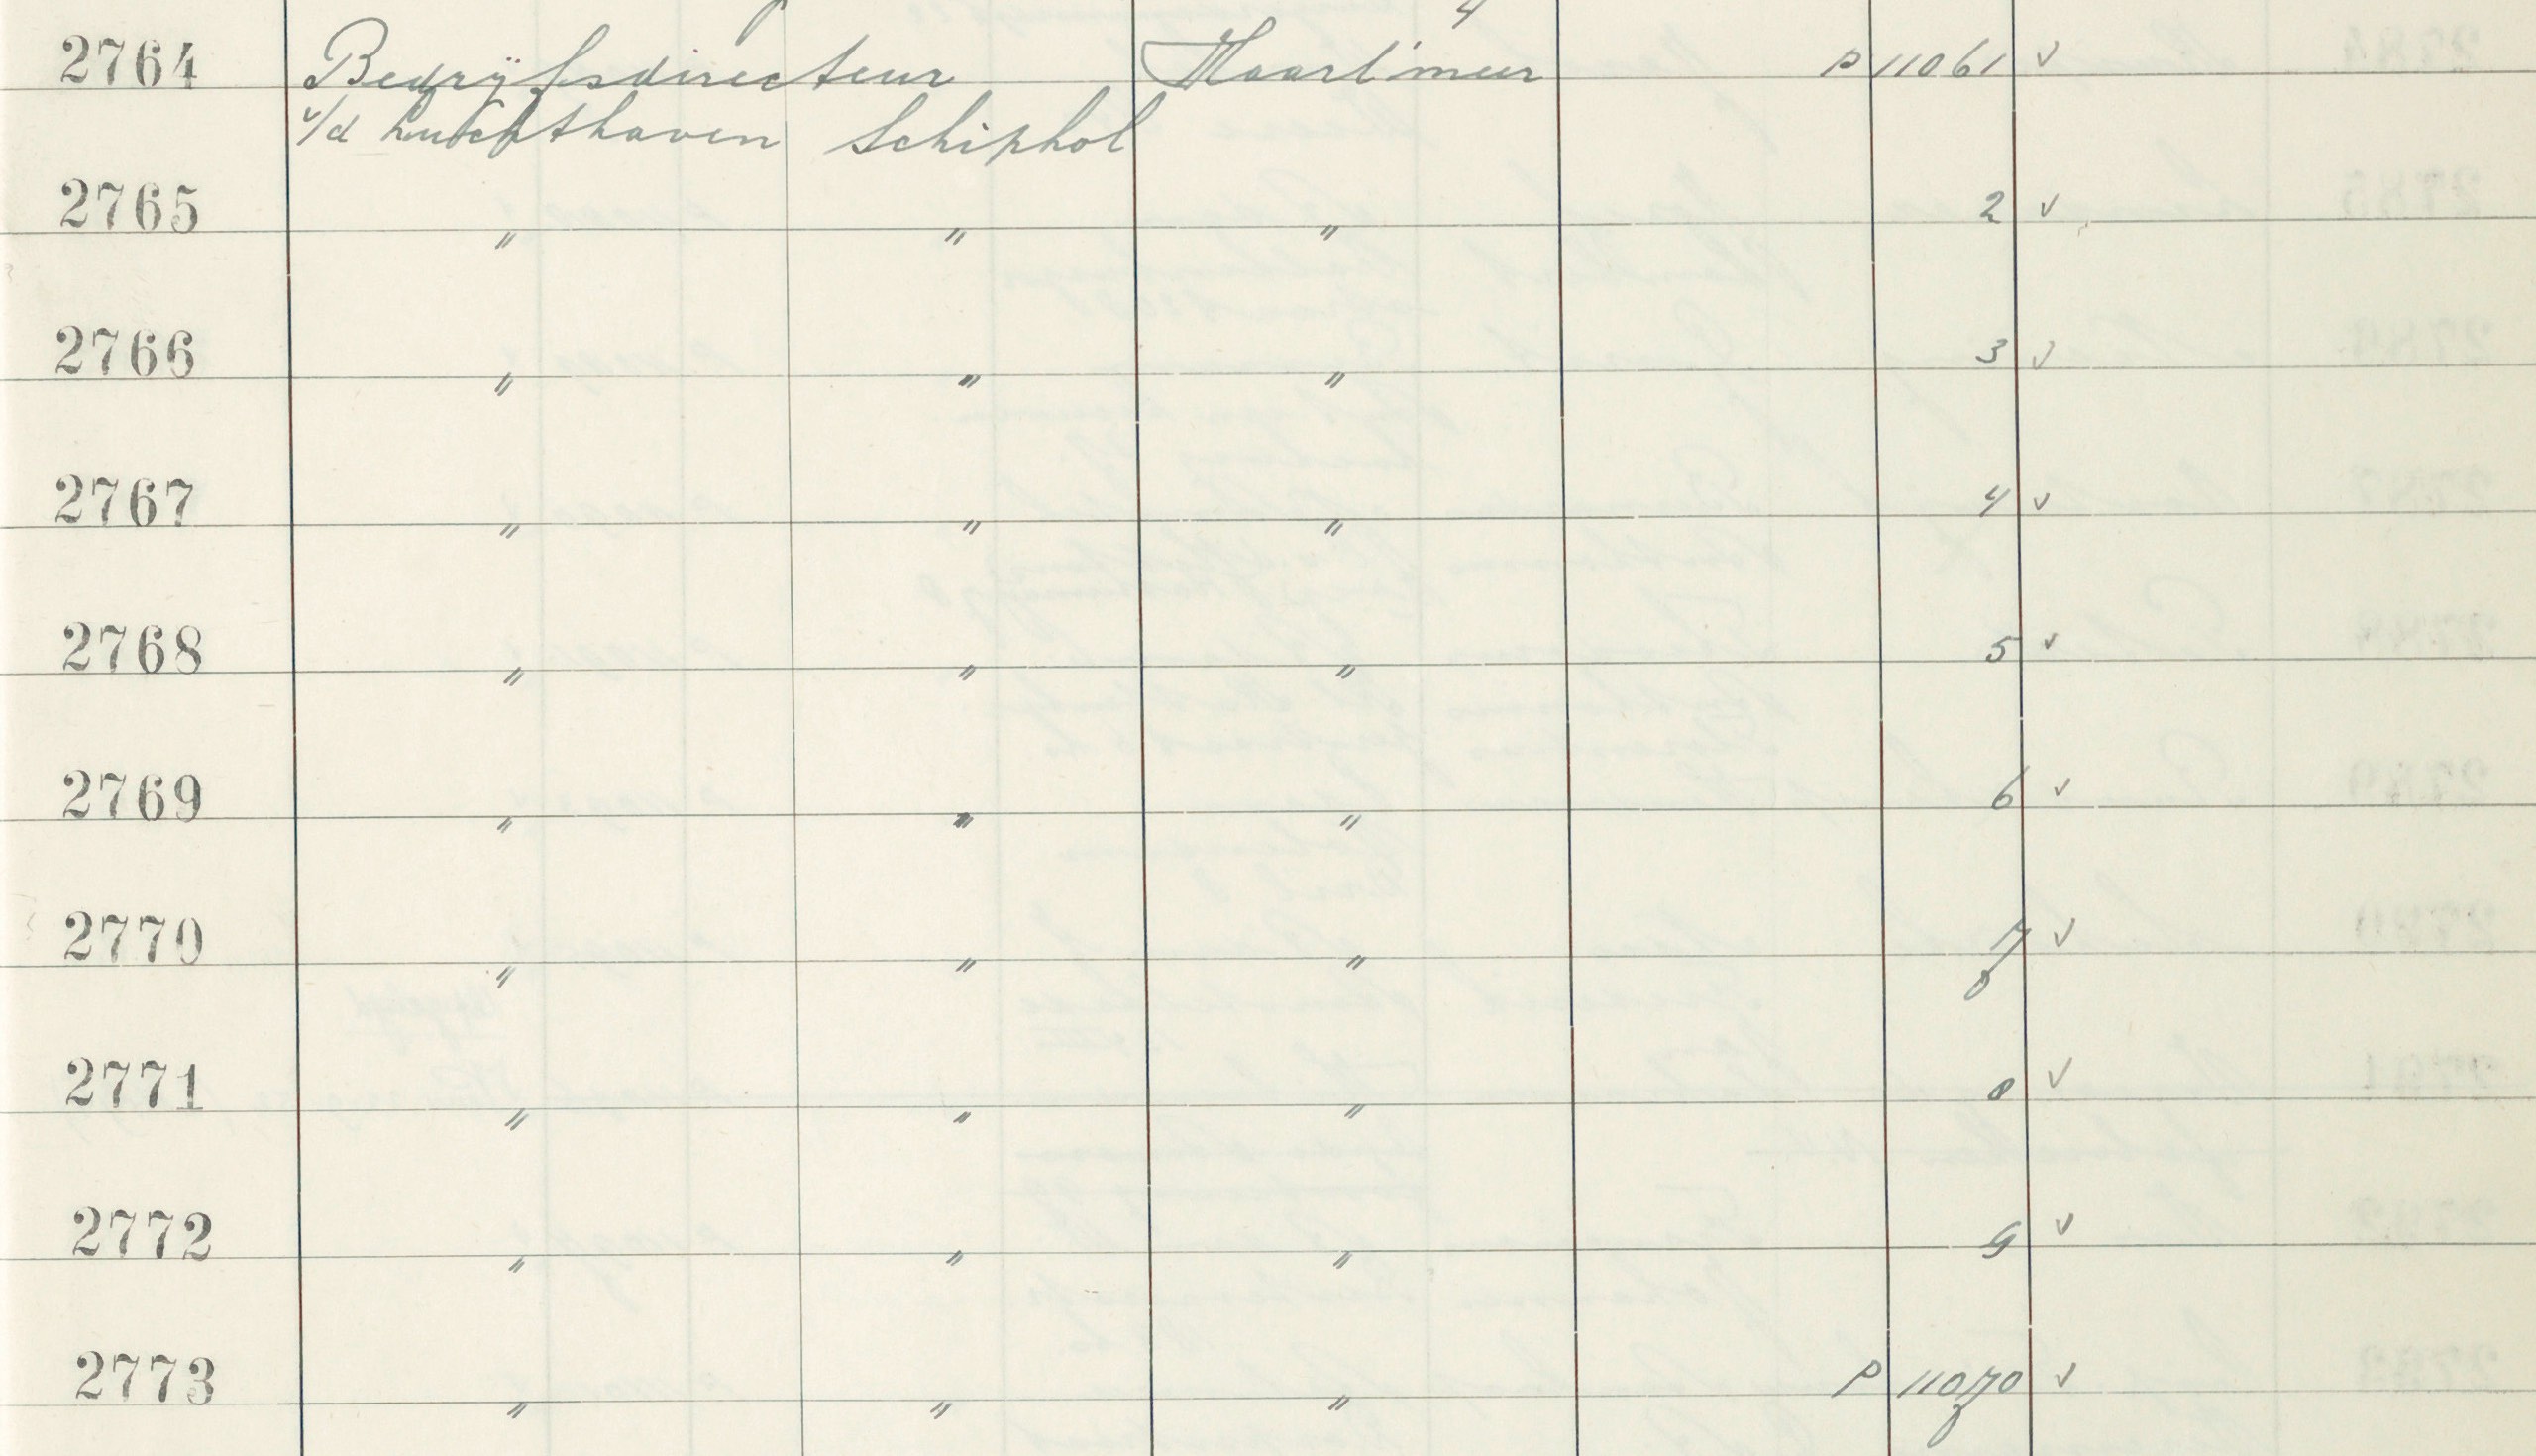 2764 Bedrijfsdirecteur Haarl'meer P 11061 √
v/d Luchthaven Schiphol
2765 " " " 2 √
2766 " " " 3 √
2767 " " " 4 √
2768 " " " 5 √
2769 " " " 6 √
2770 " " " 7 √
2771 " " " 8 √
2772 " " " 9 √
2773 " " " P 11070 √